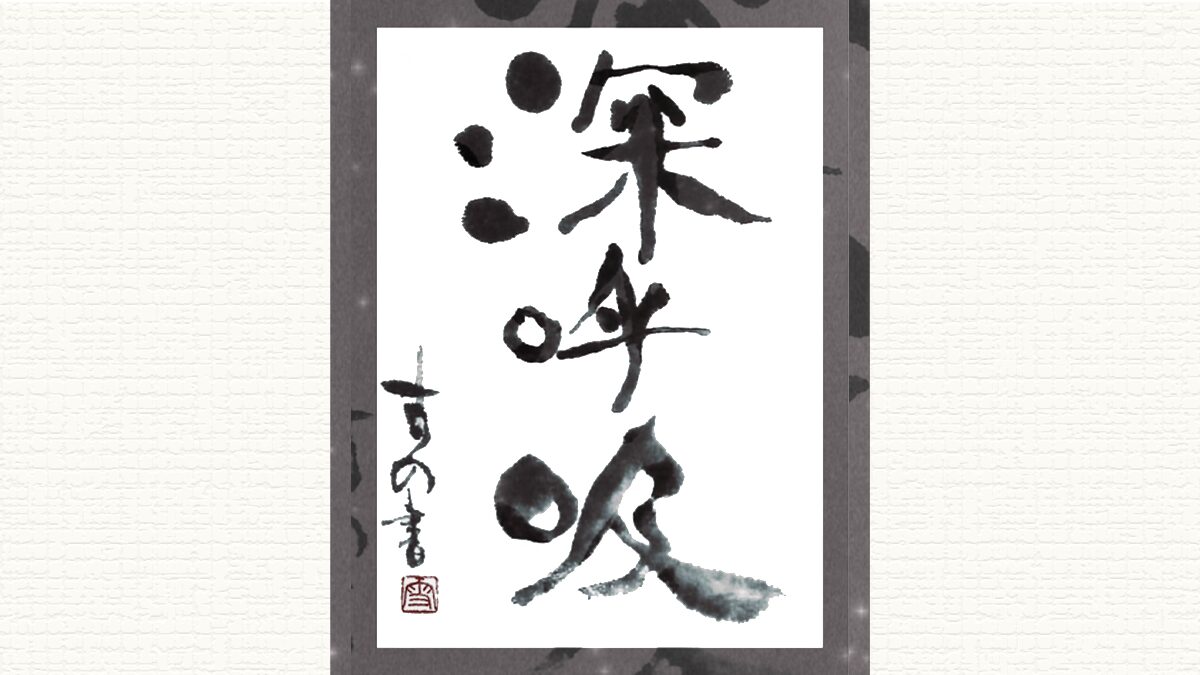 深呼吸
吉の書
雪